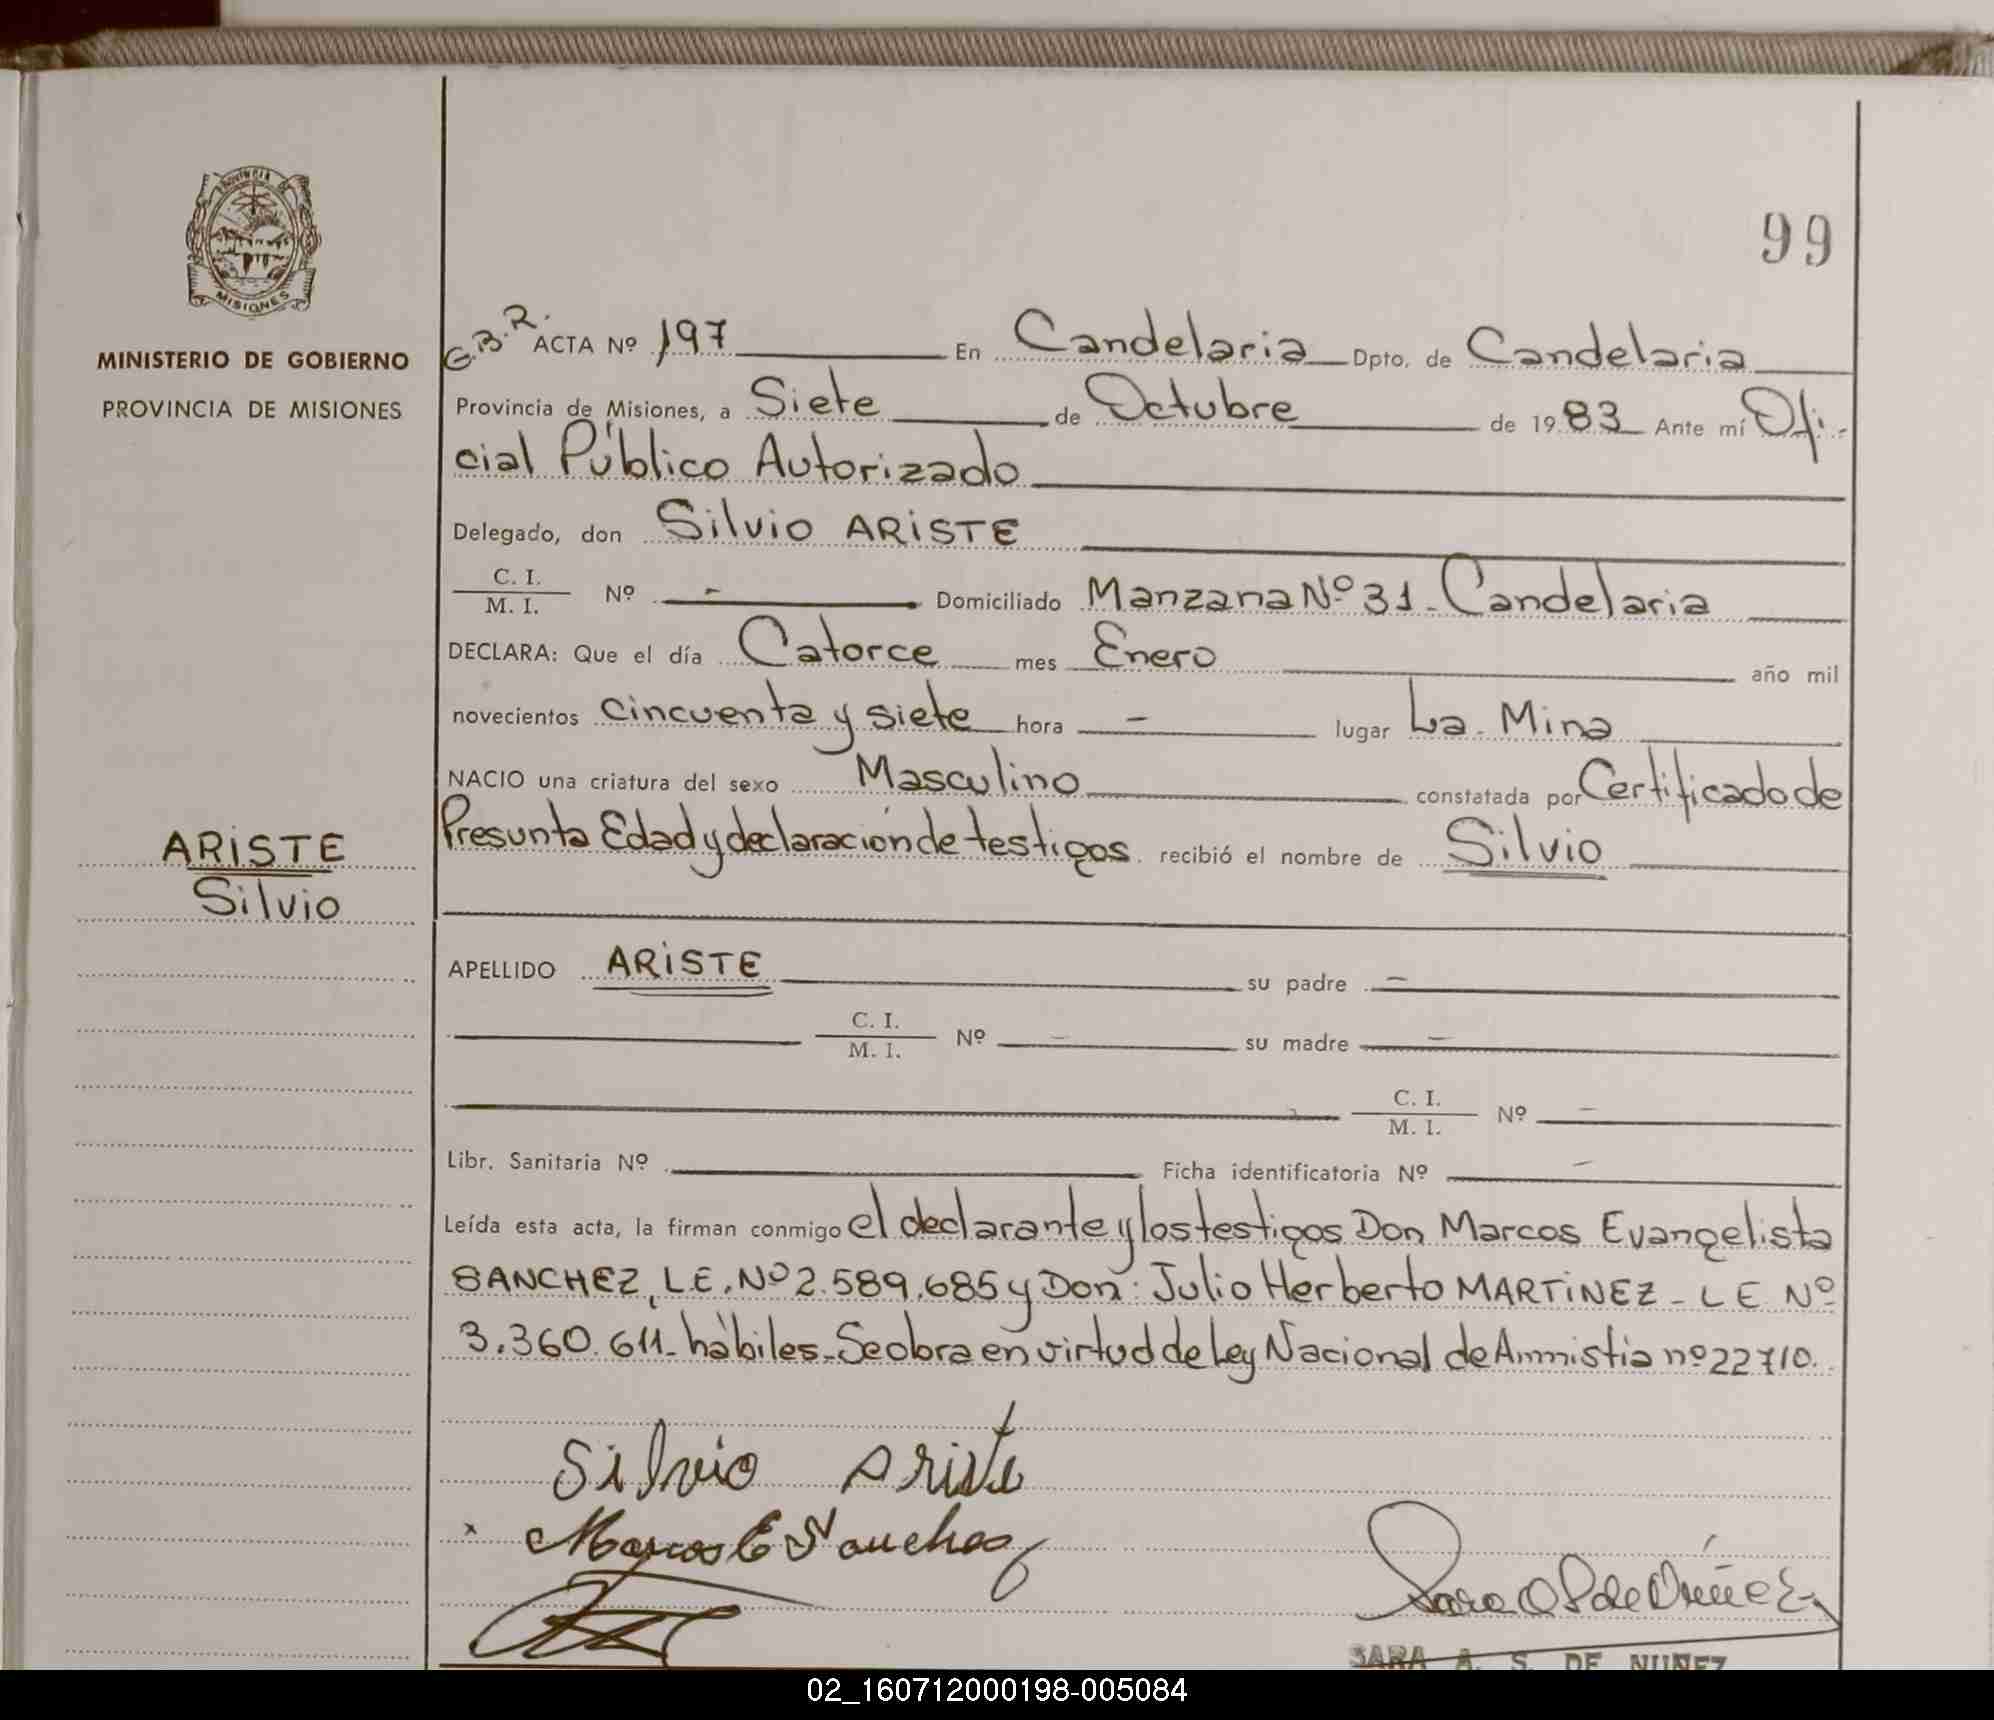 PROVINCIA DE
MISIONES
MINISTERIO DE GOBIERNO
PROVINCIA DE MISIONES
99
G.B.R. ACTA Nº 197 En Candelaria Dpto. de Candelaria
Provincia de Misiones, a Siete de Octubre de 1983 Ante mí Ofi-
cial Público Autorizado
Delegado, don Silvio ARISTE
C. I.
M. I. Nº - Domiciliado Manzana Nº 31 - Candelaria
DECLARA: Que el día Catorce mes Enero año mil
novecientos cincuenta y siete hora - lugar La Mina
NACIO una criatura del sexo Masculino constatada por Certificado de
Presunta Edad y declaración de testigos recibió el nombre de Silvio
ARISTE
Silvio
APELLIDO ARISTE su padre -
C. I.
M. I. Nº - su madre -
C. I.
M. I. Nº -
Libr. Sanitaria Nº Ficha identificatoria Nº -
Leída esta acta, la firman conmigo el declarante y los testigos Don Marcos Evangelista
SANCHEZ, L.E. Nº 2.589.685 y Don: Julio Herberto MARTINEZ - L E Nº
3.360.611 - hábiles - Se obra en virtud de Ley Nacional de Amnistia nº 22710.
Silvio Ariste
x Marcos E Sanchez
Sara A S de Núñez
SARA A. S. DE NUÑEZ
02_160712000198-005084